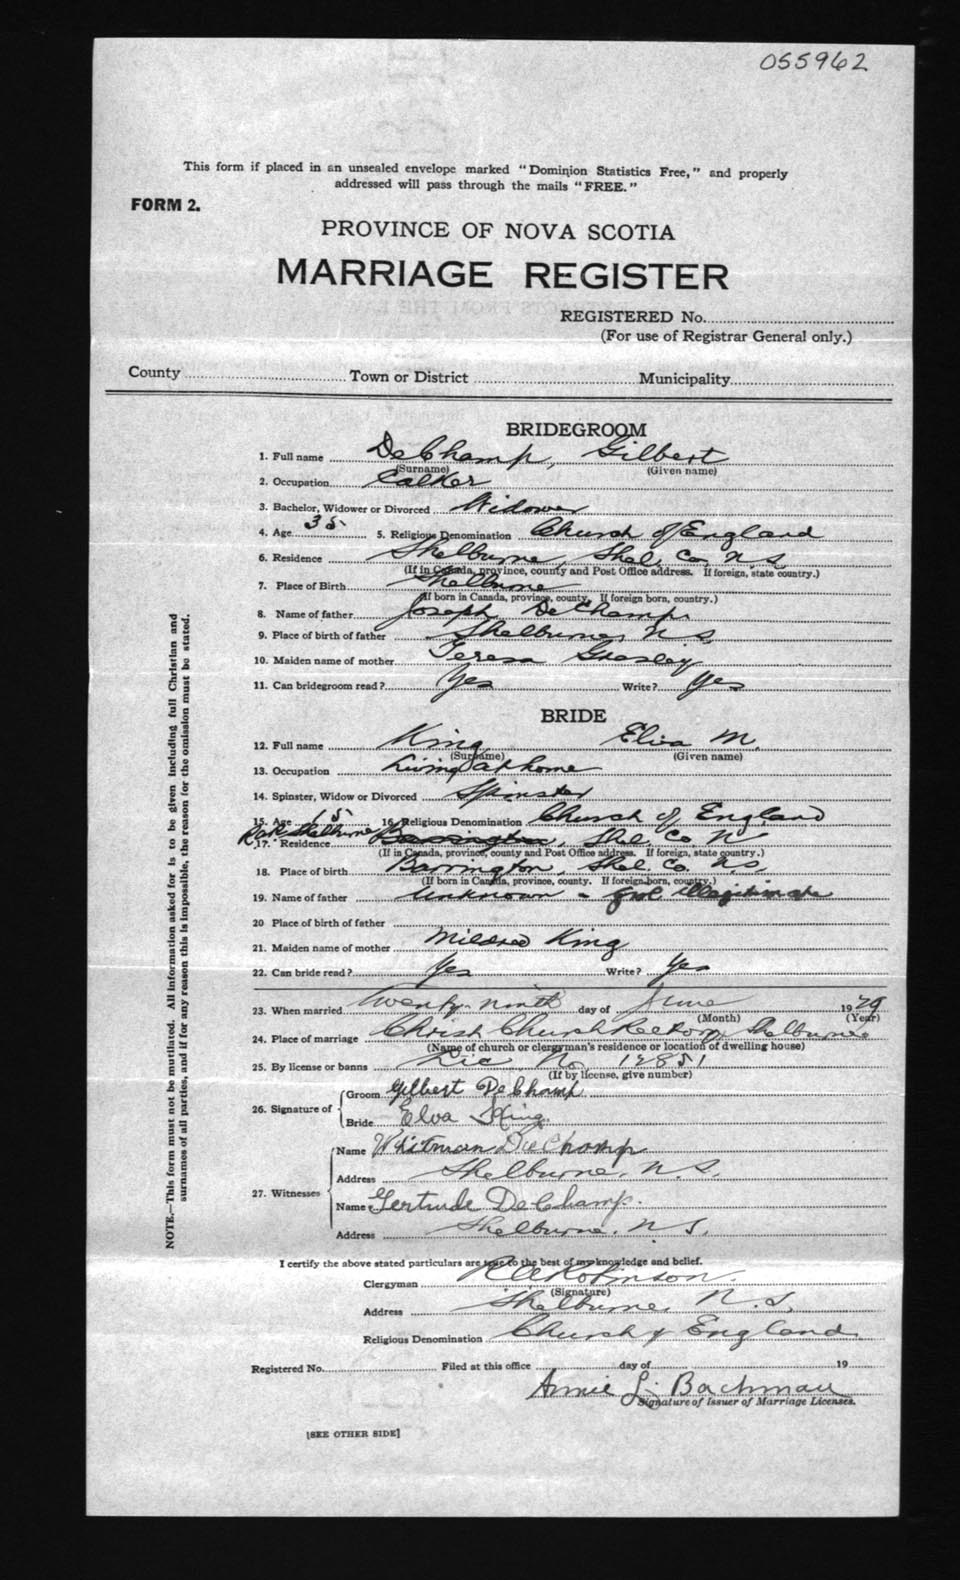 055962
This form if placed in an unsealed envelope marked "Dominion Statistics Free," and properly
addressed will pass through the mails "FREE."
FORM 2.
PROVINCE OF NOVA SCOTIA
MARRIAGE REGISTER
REGISTERED No.
(For use of Registrar General only.)
County Town or District Municipality
BRIDEGROOM
1. Full name DeChamp, Gilbert
(Surname) (Given name)
2. Occupation Calker
3. Bachelor, Widower or Divorced Widower
4. Age 35 5. Religious Denomination Church of England
6. Residence Shelburne, Shel. Co. N.S.
(If in Canada, province, county and Post Office address. If foreign, state country.)
7. Place of Birth Shelburne
(If born in Canada, province, county. If foreign born, country.)
8. Name of father Joseph DeChamp
9. Place of birth of father Shelburne, N S
10. Maiden name of mother Teresa
11. Can bridegroom read? Yes Write? Yes
BRIDE
12. Full name King Elva M.
(Surname) (Given name)
13. Occupation Living at home
14. Spinster, Widow or Divorced Spinster
15. Age 15 16. Religious Denomination Church of England
Shelburne
17. Residence Barrington, Shel. Co. N
(If in Canada, province, county and Post Office address. If foreign, state country.)
18. Place of birth Barrington, Shel. Co. N.S.
(If born in Canada, province, county. If foreign born, country.)
19. Name of father Unknown - Illegitimate
20 Place of birth of father
21. Maiden name of mother Mildred King
22. Can bride read? Yes Write? Yes
23. When married Twenty ninth day of June 1929
(Month) (Year)
24. Place of marriage Christ Church Rectory, Shelburne
(Name of church or clergyman's residence or location of dwelling house)
25. By license or banns Lic No. 12851
(If by license, give number)
26. Signature of Groom Gilbert DeChamp
Bride Elva King
27. Witnesses Name Whitman DeChamp
Address Shelburne, N.S.
Name Gertrude DeChamp.
Address Shelburne. N.S.
I certify the above stated particulars are true to the best of my knowledge and belief.
Clergyman Robinson.
(Signature)
Address Shelburne, N.S.
Religious Denomination Church of England
Registered No. Filed at this office day of 19
Annie L. Bachman
Signature of Issuer of Marriage Licenses.
[SEE OTHER SIDE]
NOTE.—This form must not be mutilated. All information asked for is to be given including full Christian and
surnames of all parties, and if for any reason this is impossible, the reason for the omission must be stated.